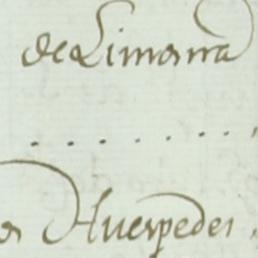 de Limosna
. . . . . . . .
Huespedes .